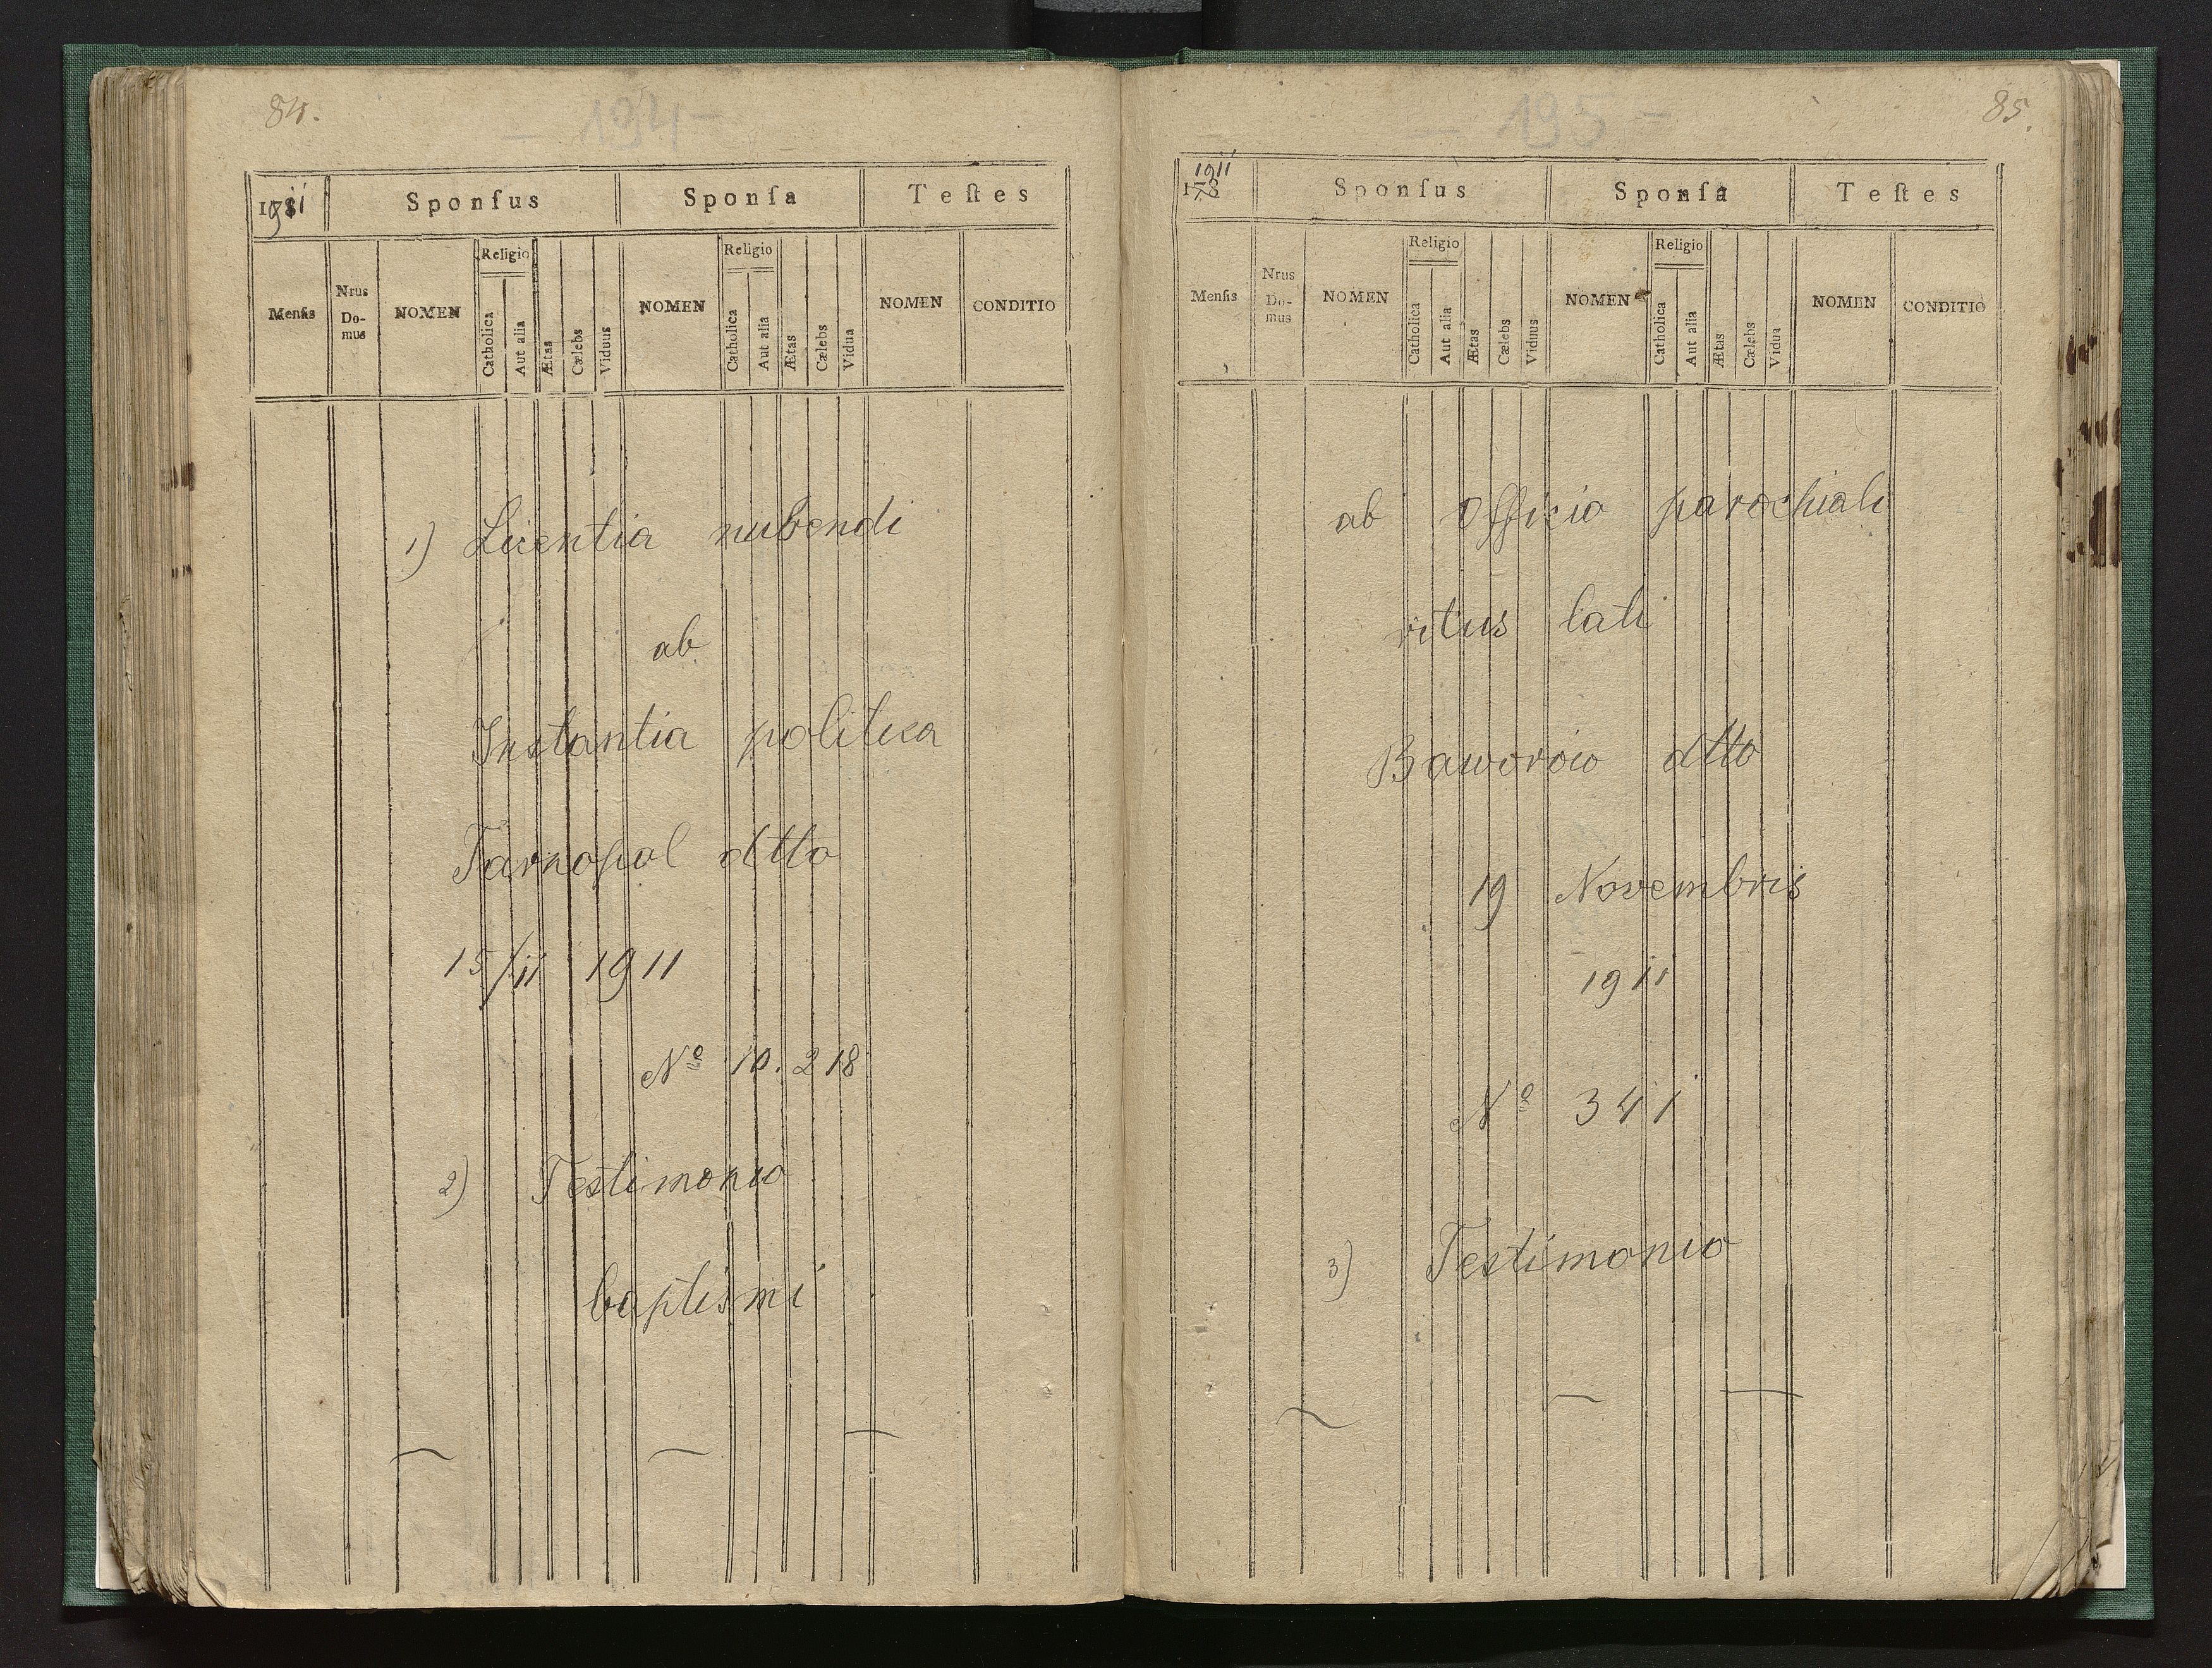 84.
- 194 -
1911
Sponſus Sponſa Teſtes
Menſis Nrus Do-mus NOMEN Religio Catholica Aut alia Ætas Cælebs Viduus NOMEN Religio Catholica Aut alia Ætas Cælebs Vidua NOMEN CONDITIO
1) Licentia nubendi
ab
Instantia politica
Tarnopol dtto
15/11 1911
Nº 10.218
2) Testimonio
baptismi
85.
- 195 -
1911
178
Sponſus Sponſa Teſtes
Menſis Nrus Do-mus NOMEN Religio Catholica Aut alia Ætas Cælebs Viduus NOMEN Religio Catholica Aut alia Ætas Cælebs Vidua NOMEN CONDITIO
ab Officio parochiali
ritus lati
Baworów dtto
19 Novembris
1911
Nº 341
3) Testimonio